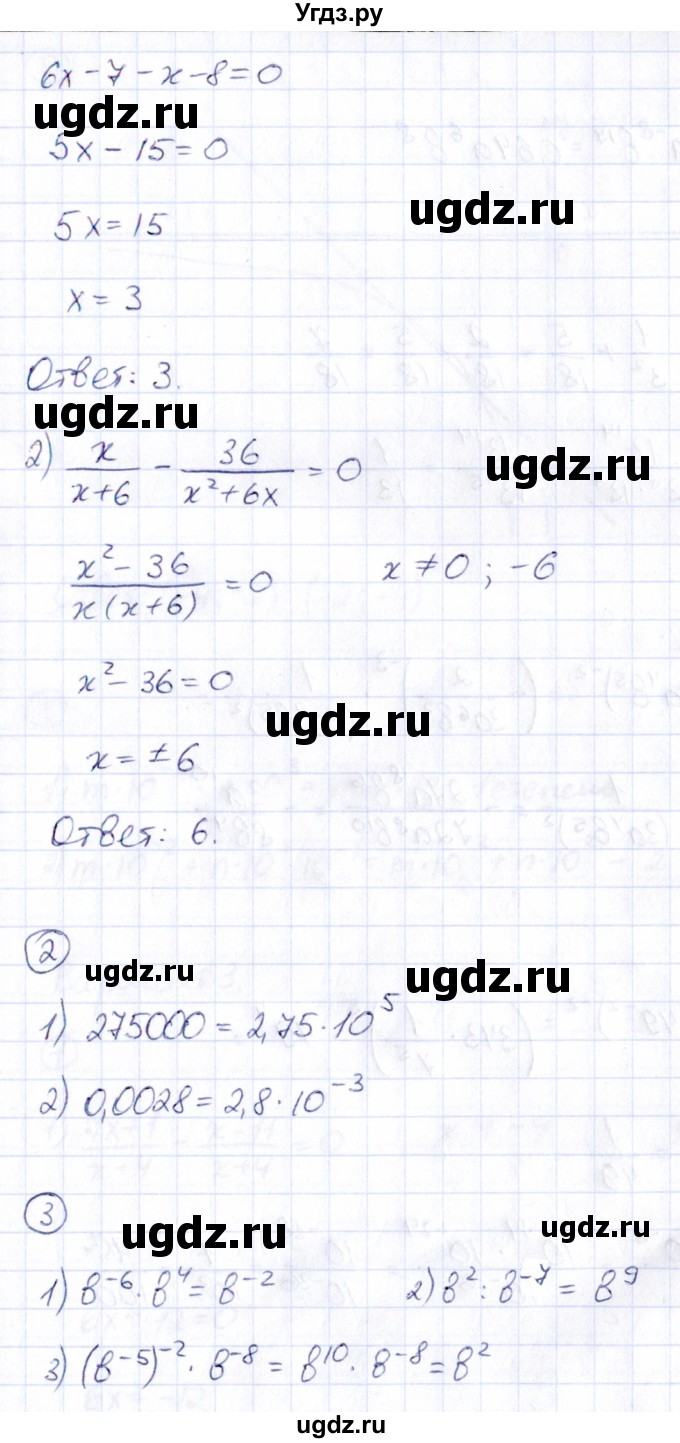 Угдз.ру
6x - 7 - x - 8 = 0
ugdz.ru
5x - 15 = 0
ugdz.ru
5x = 15
x = 3
Ответ: 3.
ugdz.ru
2) x/(x+6) - 36/(x²+6x) = 0
ugdz.ru
(x² - 36)/(x(x+6)) = 0 x ≠ 0 ; -6
x² - 36 = 0
ugdz.ru
x = ±6
Ответ: 6.
2
ugdz.ru
ugdz.ru
1) 275000 = 2,75 · 10⁵
2) 0,0028 = 2,8 · 10⁻³
3
ugdz.ru
ugdz.ru
1) в⁻⁶ · в⁴ = в⁻² 2) в² : в⁻⁷ = в⁹
3) (в⁻⁵)⁻² · в⁻⁸ = в¹⁰ · в⁻⁸ = в²
ugdz.ru